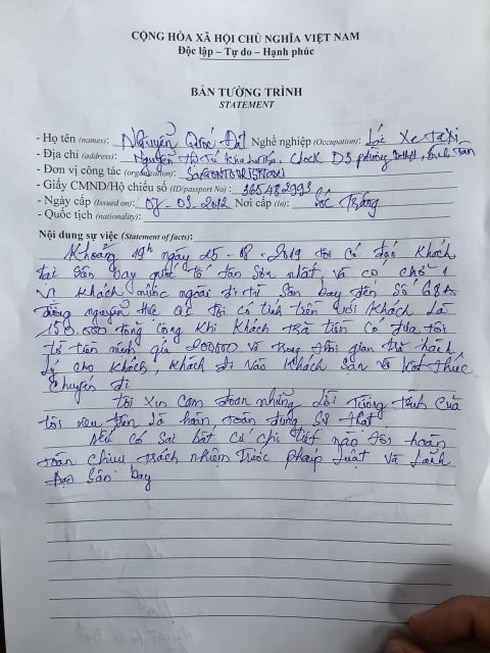 CỘNG HÒA XÃ HỘI CHỦ NGHĨA VIỆT NAM
Độc lập – Tự do – Hạnh phúc
BẢN TƯỜNG TRÌNH
STATEMENT
- Họ tên (names): Nguyễn Quốc Đạt Nghề nghiệp (Occupation): Lái xe taxi
- Địa chỉ (address): Nguyễn Thị Tú D5 phường Tân
- Đơn vị công tác (organization): SAIGONTOURIST TAXI
- Giấy CMND/Hộ chiếu số (ID/passport No): 365482993
- Ngày cấp (Issued on): 07-03-2012 Nơi cấp (In): Sóc Trăng
- Quốc tịch (nationality):
Nội dung sự việc (Statement of facts):
Khoảng 19h ngày 25-08-2019 tôi có đón khách
tại sân bay quốc tế tân sơn nhất và có chở 1
vị khách nước ngoài đi từ sân bay đến số 68A
đường nguyễn huệ tôi có tính tiền với khách là
150.000 tổng cộng khi khách trả tiền có đưa tôi
tờ tiền mệnh giá 200000 và trong thời gian trả hành
lý cho khách, khách đi vào khách sạn và kết thúc
chuyến đi
tôi xin cam đoan những lời tường trình của
tôi nêu trên là hoàn toàn đúng sự thật
nếu có sai bất cứ chi tiết nào tôi hoàn
toàn chịu trách nhiệm trước pháp luật và lãnh
đạo sân bay